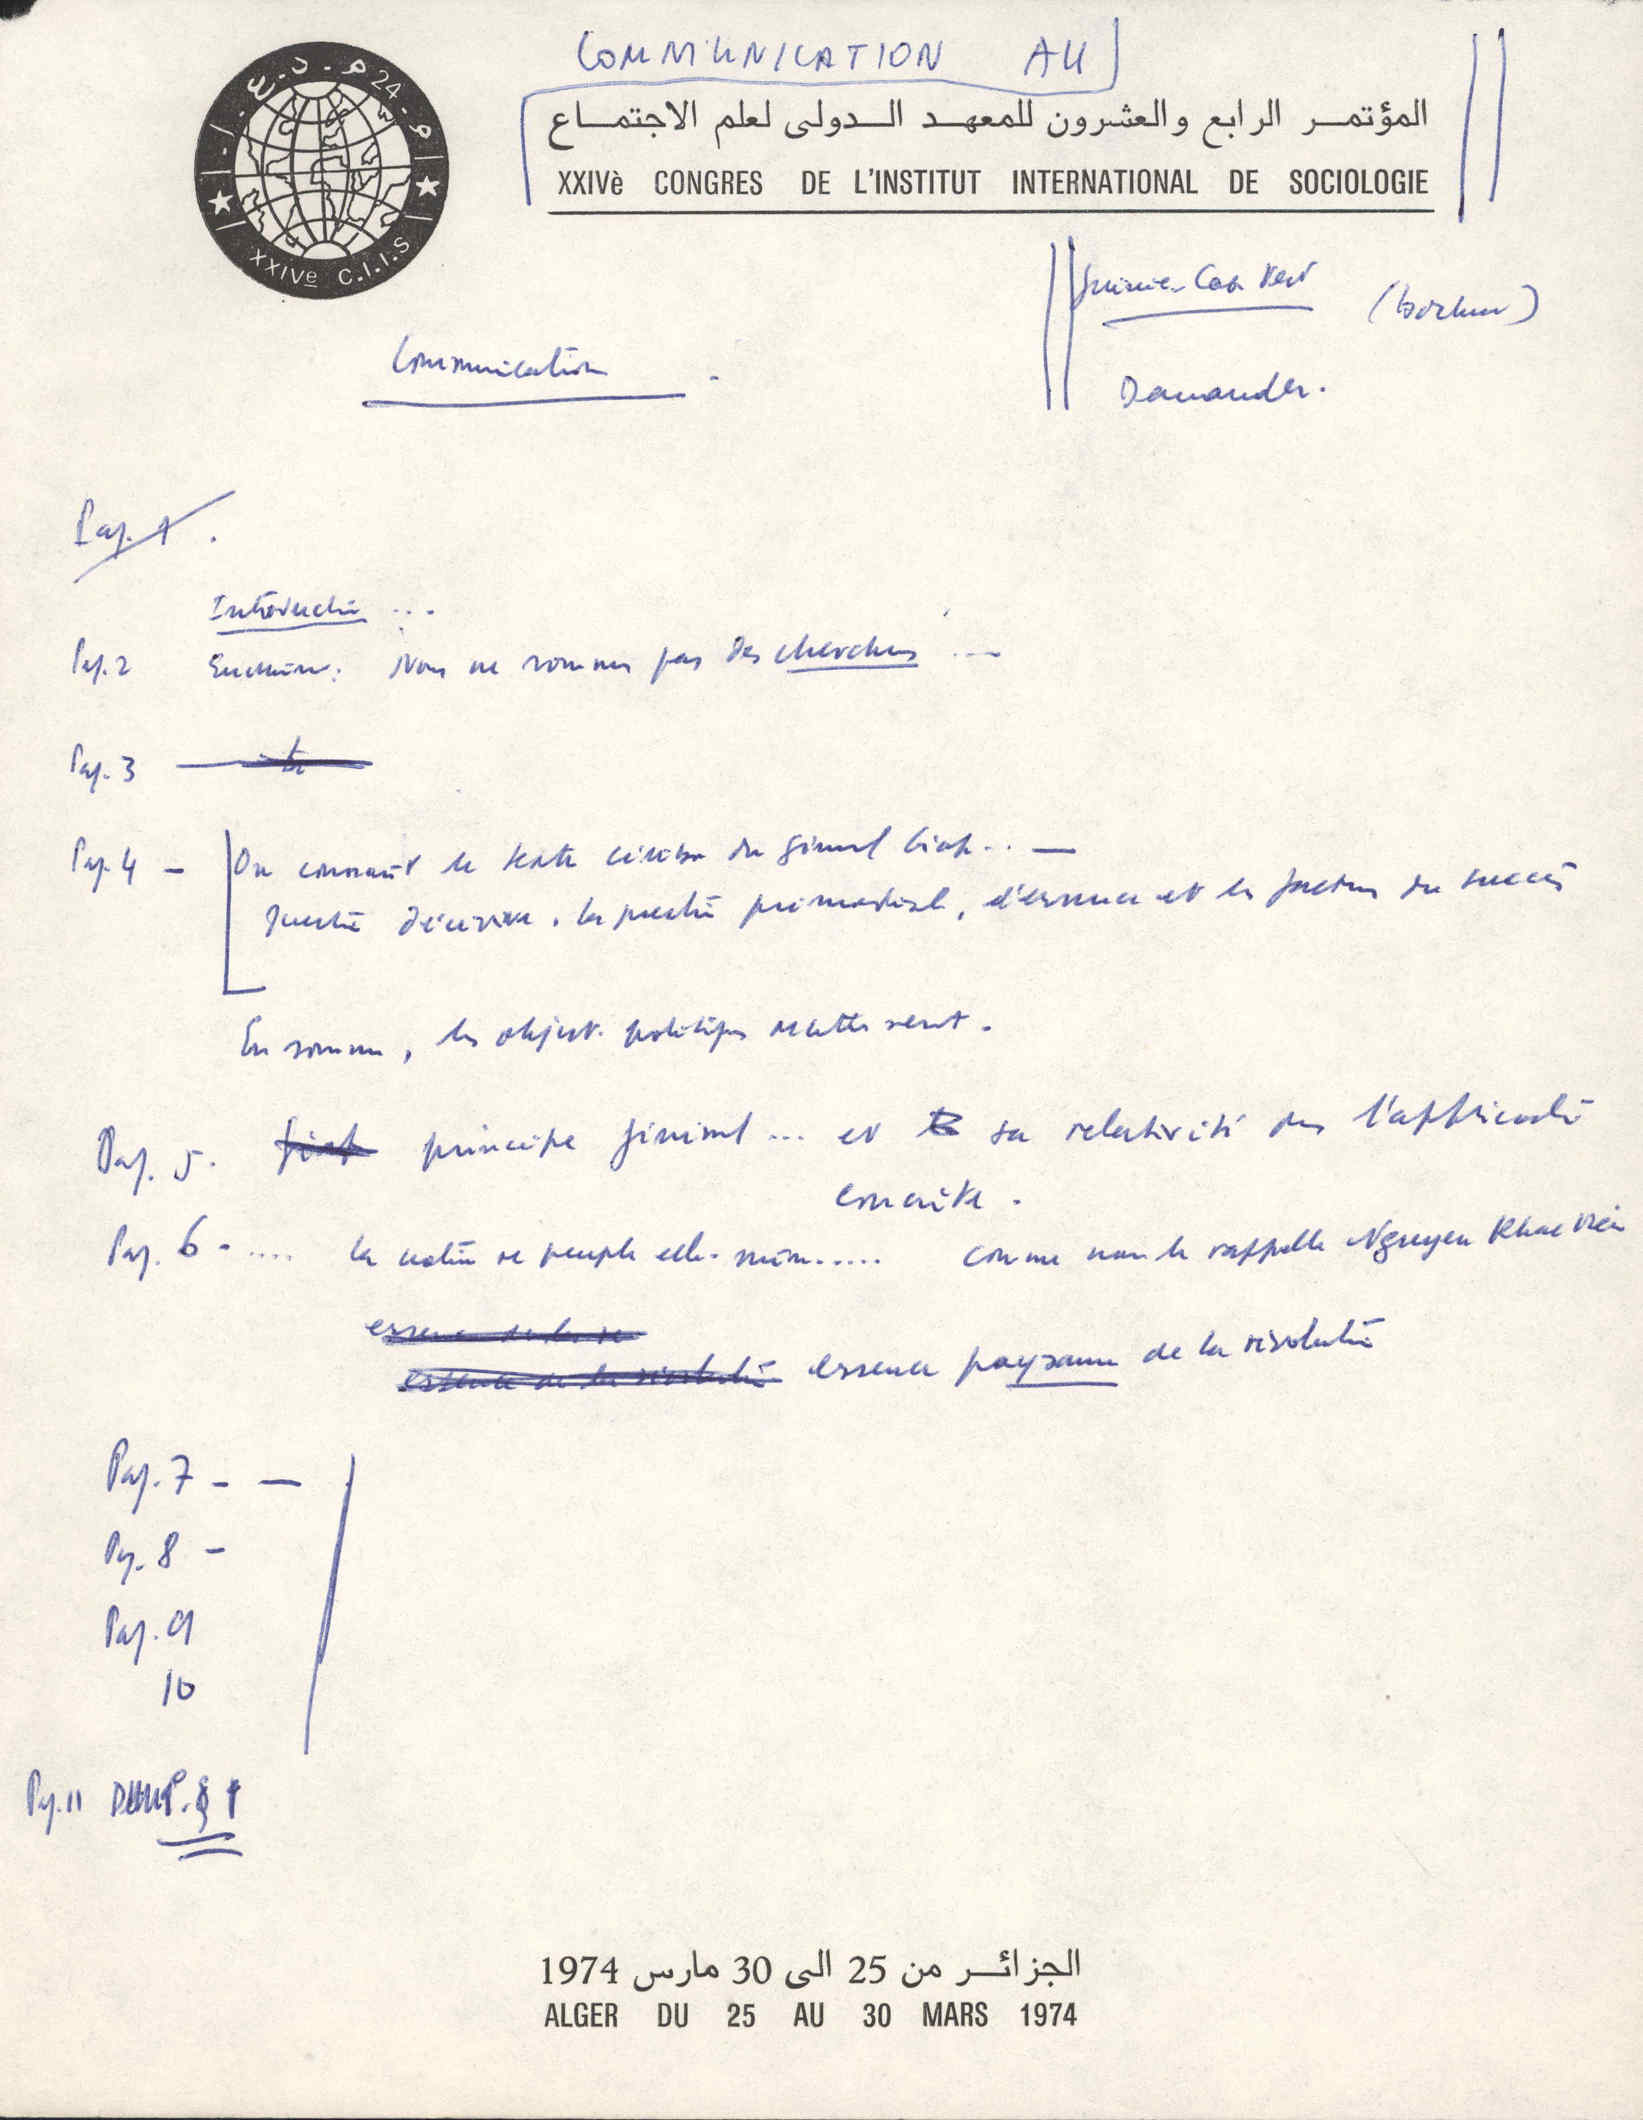 COMMUNICATION AU
م.د.ع.ا.
م-24
المؤتمر الرابع والعشرون للمعهد الدولى لعلم الاجتماع
XXIVè CONGRES DE L'INSTITUT INTERNATIONAL DE SOCIOLOGIE
XXIVe C.I.I.S
Guinée-Cap Vert
Communication
Demander.
Pag. 1.
Introduction ...
Pag. 2 Nous ne sommes pas des chercheurs
Pag. 3
Pag. 4 - On connait le texte du Général Giap...
décisive. la primordiale, d'essence et les facteurs du succès
En somme, les object. politiques
Pag. 5. Giap principe général ... et sa relativité dans l'application
concrète.
Pag. 6 - .... la notion de peuple elle-même..... comme nous le rappelle Nguyen Khac Vien
essence de la re
essence de la révolution essence paysanne de la révolution
Pag. 7 - -
Pag. 8 -
Pag. 9
10
Pag. 11
الجزائر من 25 الى 30 مارس 1974
ALGER DU 25 AU 30 MARS 1974